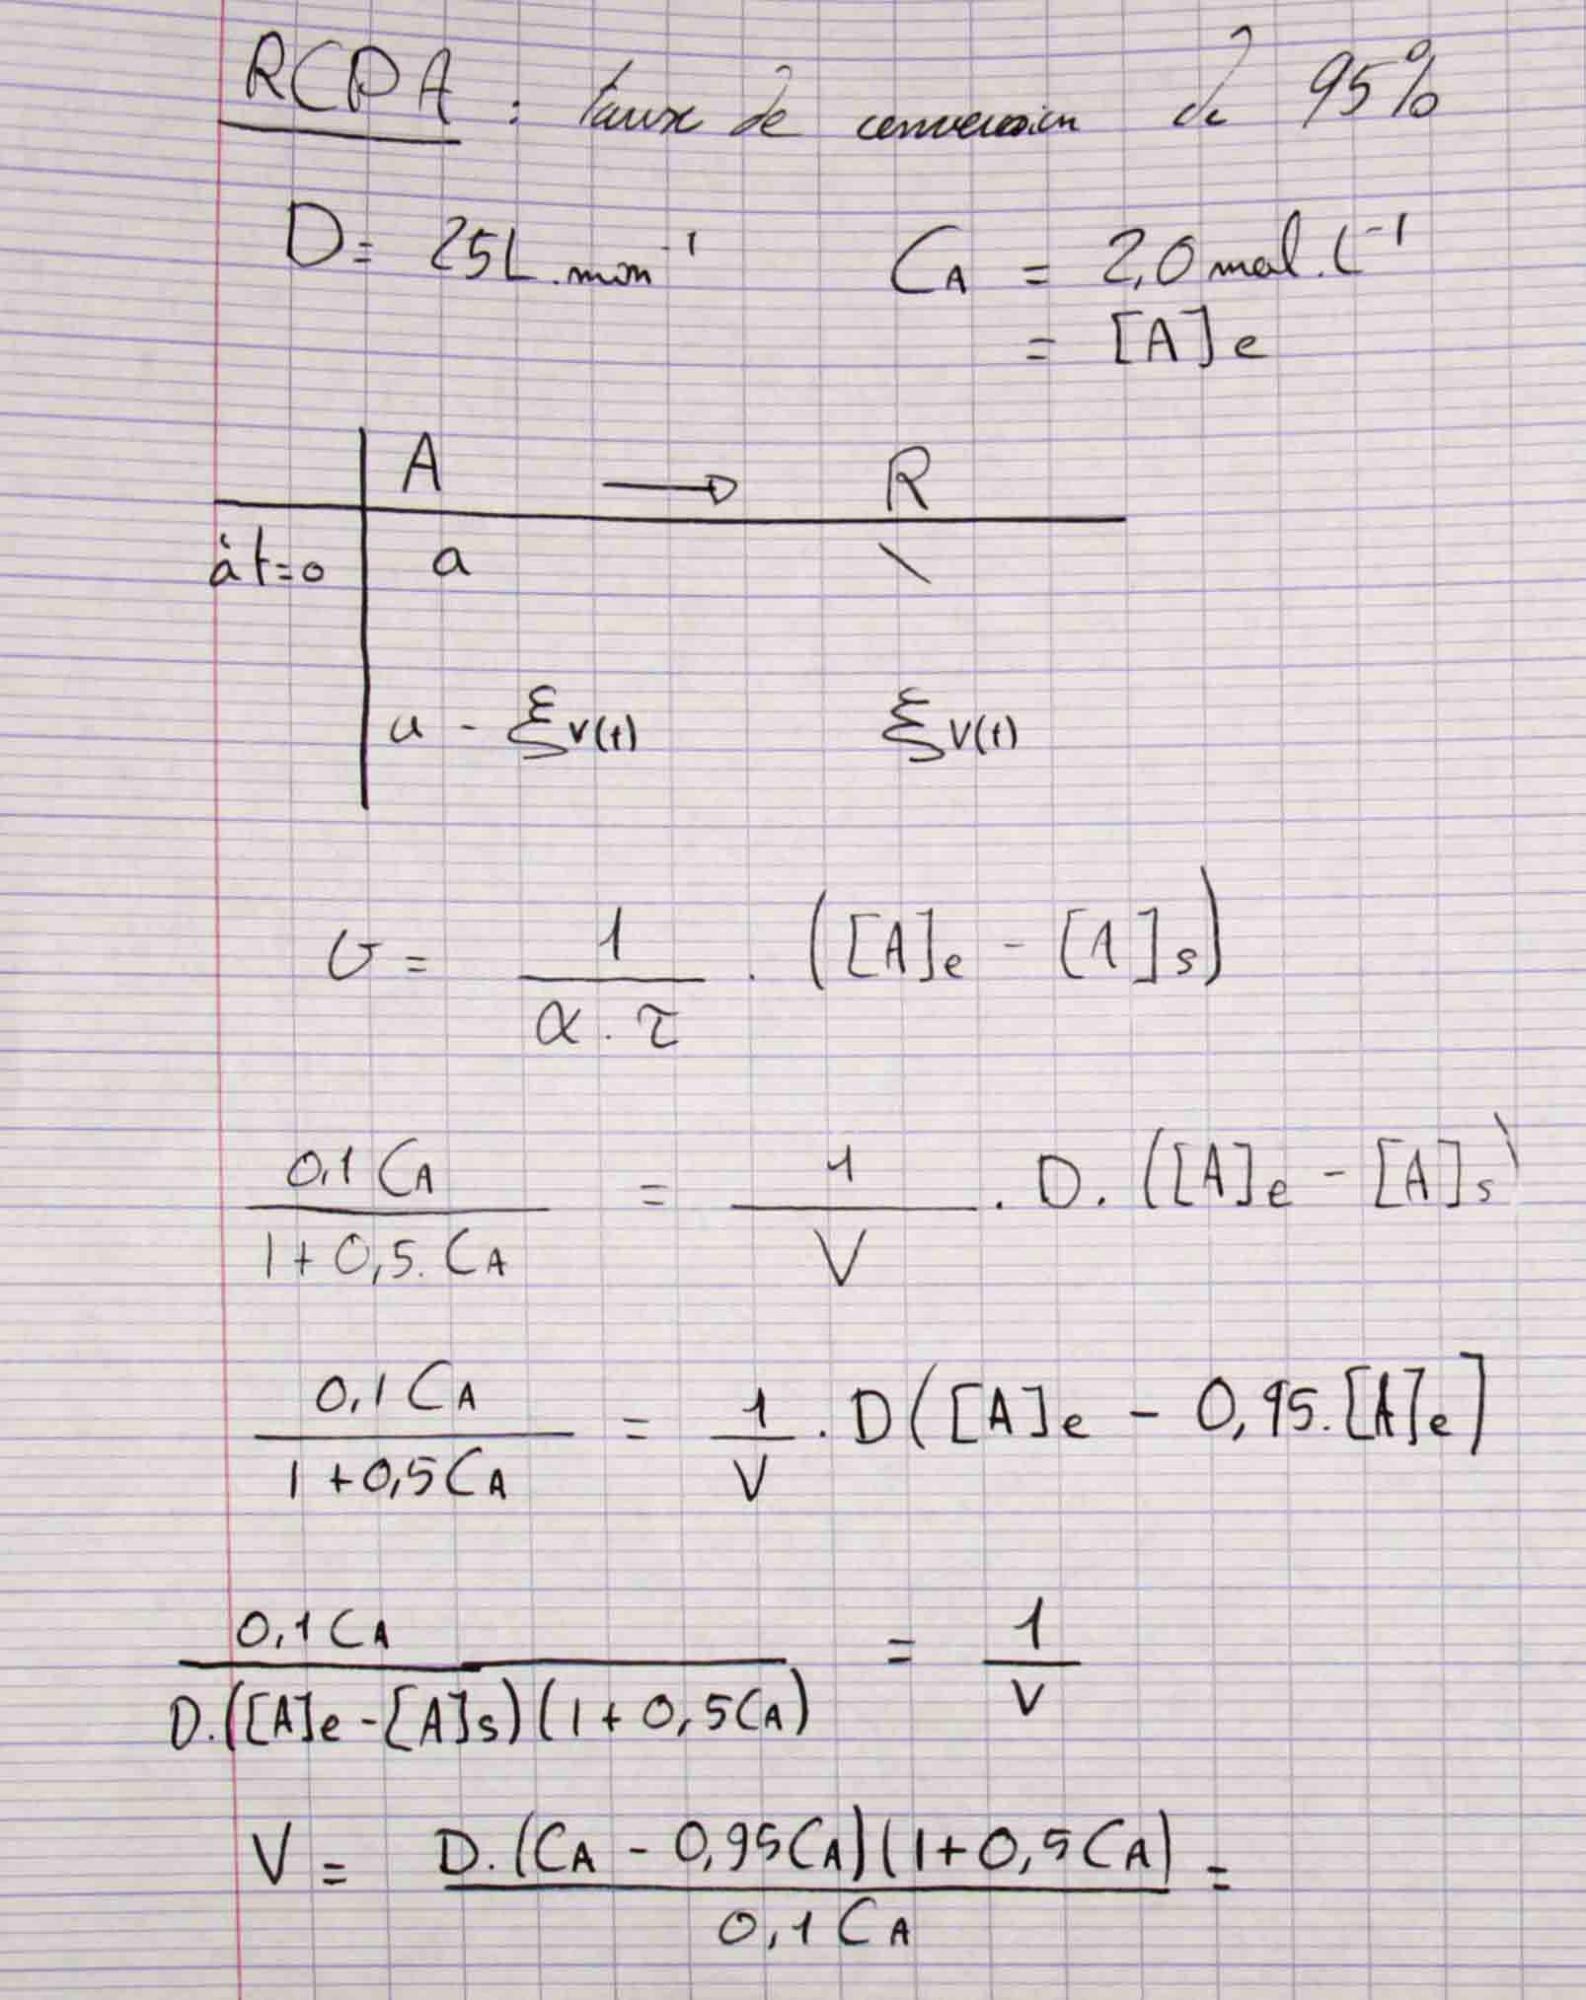 RCPA : taux de conversion de 95%
D= 25L.min⁻¹ CA = 2,0 mol.L⁻¹
= [A]e
A → R
à t=0 a \
a - ξv(t) ξv(t)
v = 1/(α.τ) . ([A]e - [A]s)
0,1 CA/(1+0,5.CA) = 1/V . D. ([A]e - [A]s)
0,1 CA/(1+0,5CA) = 1/V . D([A]e - 0,95.[A]e]
0,1 CA/(D.([A]e-[A]s)(1+0,5CA)) = 1/V
V = D.(CA - 0,95CA)(1+0,5CA)/(0,1 CA) =